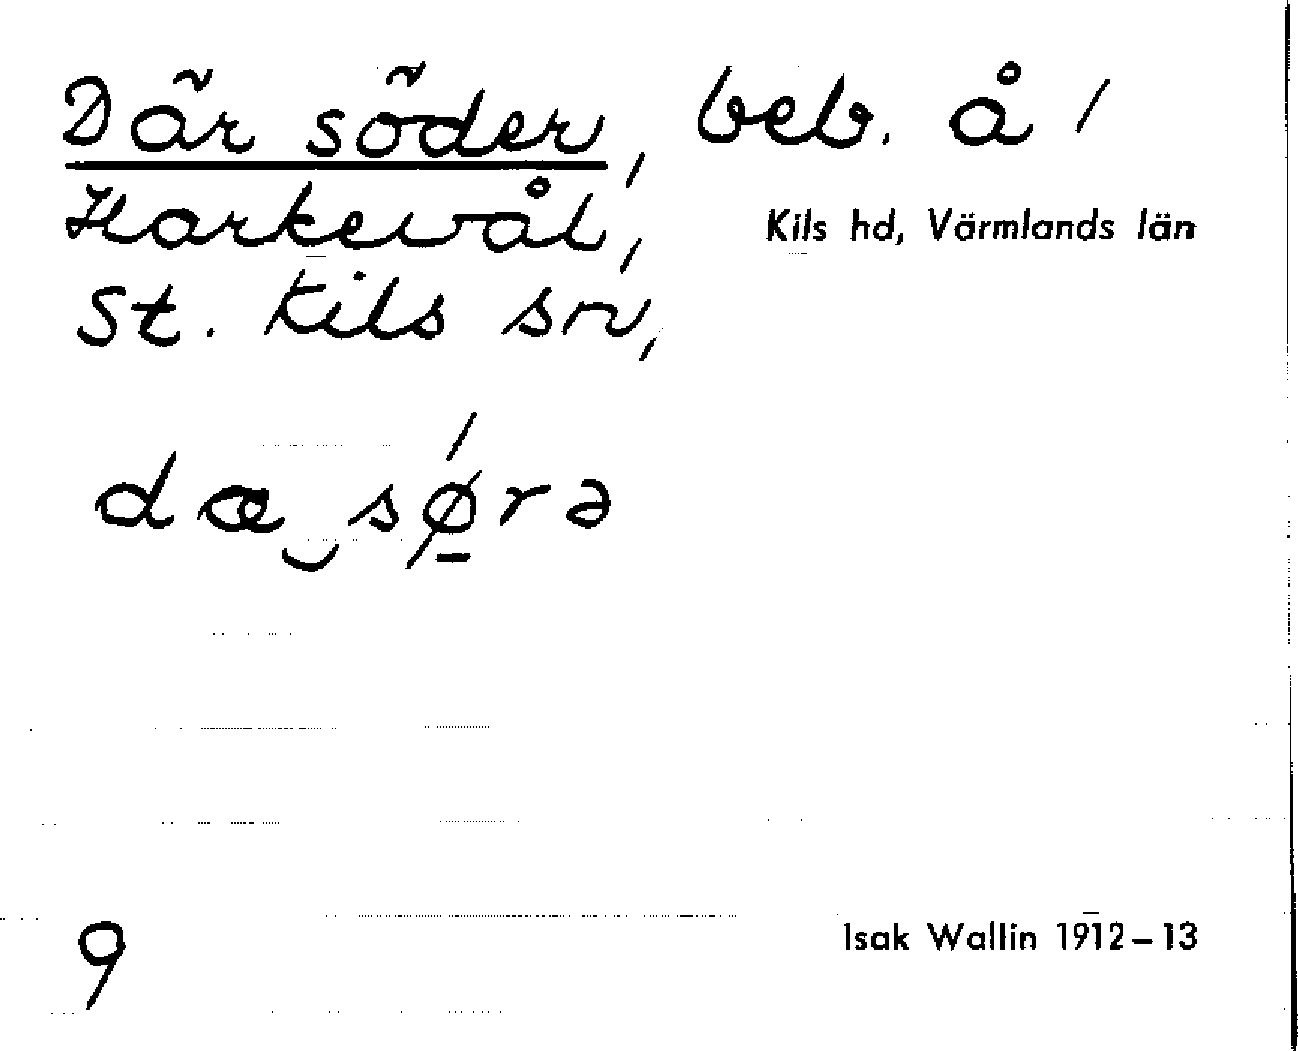 Där söder, beb. å /
Harkevål,
Kils hd, Värmlands län
St. Kils sn,
dæ‿sǿ̱rə
9
Isak Wallin 1912–13